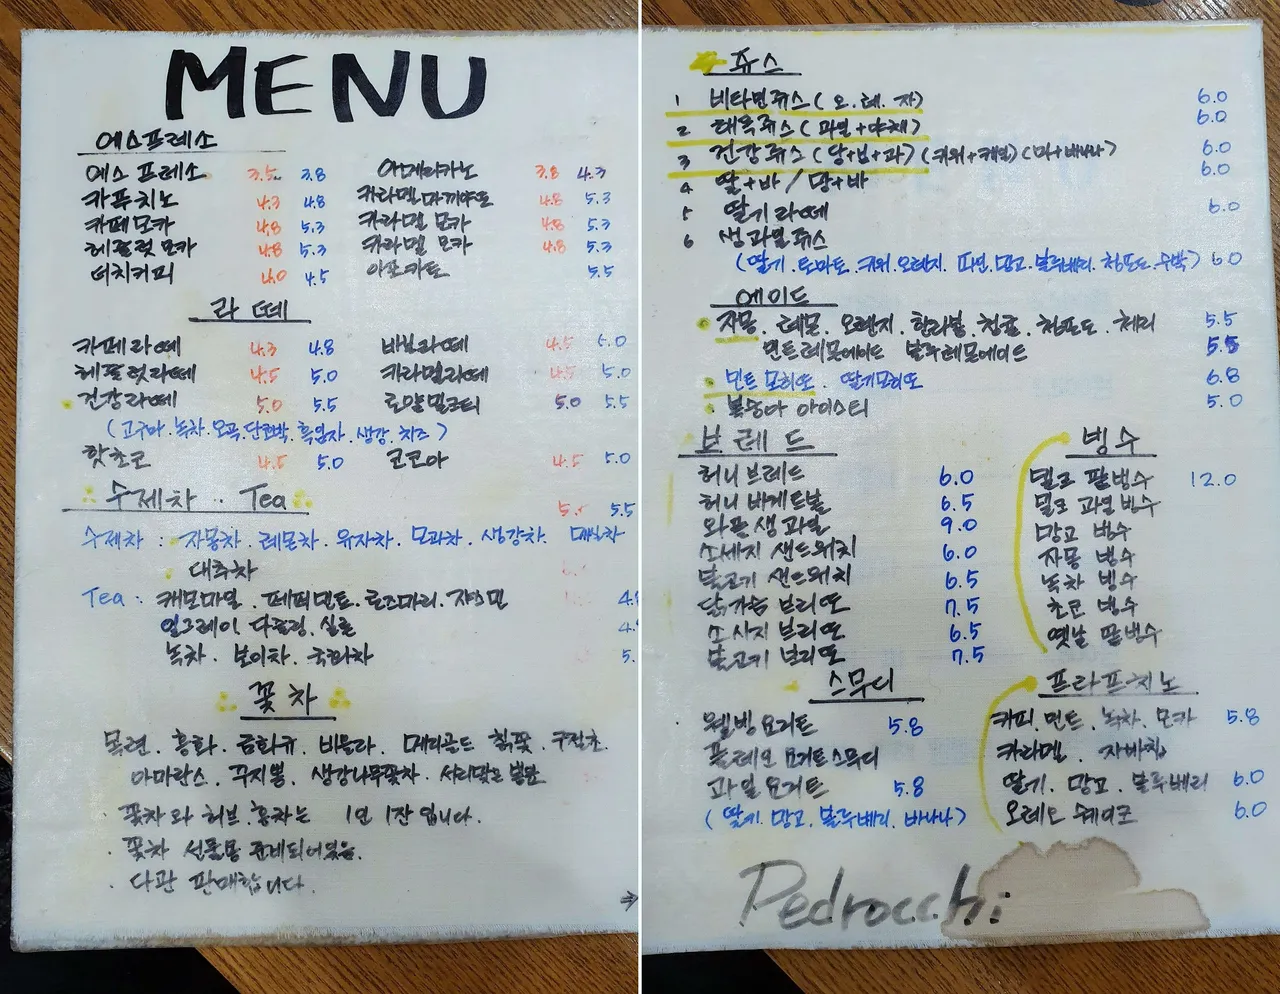 MENU
에스프레소
에스프레소 3.5 3.8
카푸치노 4.3 4.8
카페모카 4.8 5.3
헤즐럿 모카 4.8 5.3
더치커피 4.0 4.5
아메리카노 3.8 4.3
카라멜 마끼아또 4.8 5.3
카라멜 모카 4.8 5.3
카라멜 모카 4.8 5.3
아포카토 5.5
라떼
카페라떼 4.3 4.8
헤즐럿라떼 4.5 5.0
건강라떼 5.0 5.5
바닐라떼 4.5 5.0
카라멜라떼 4.5 5.0
로얄밀크티 5.0 5.5
(고구마.녹차.오곡.단호박.흑임자.생강.치즈)
핫쵸코 4.5 5.0
코코아 4.5 5.0
수제차 .. Tea 5.5
수제차 : 자몽차.레몬차.유자차.모과차.생강차. 매실차
대추차
Tea : 캐모마일.페퍼민트.로즈마리.자스민
얼그레이 다즐링.실론
녹차.보이차.국화차 5.
꽃차
목련.홍화.금화규.비트차.메리골드 칡꽃.구절초.
아마란스.꾸지뽕.생강나무꽃차.서리맞은
· 꽃차와 허브.홍차는 1인 1잔 입니다.
· 꽃차 선물용 준비되어있음.
· 다관 판매합니다.
쥬스
1 비타민쥬스(오.레.자) 6.0
2 해독쥬스(과일+야채) 6.0
3 건강쥬스(당+비+과)(키위+케일)(마+바나나) 6.0
4 딸+바/망+바 6.0
5 딸기라떼 6.0
6 생과일쥬스
(딸기.토마토.키위.오렌지.파인.망고.블루베리.청포도.수박) 6.0
에이드
자몽.레몬.오렌지.한라봉.청귤.청포도.체리 5.5
민트레몬에이드 블루레몬에이드 5.5
민트모히또.딸기모히또 6.8
복숭아 아이스티 5.0
브레드
허니브레드 6.0
허니바게트볼 6.5
와플생과일 9.0
소세지 샌드위치 6.0
불고기 샌드위치 6.5
닭가슴 브리또 7.5
소시지 브리또 6.5
불고기 브리또 7.5
빙수
델로 팥빙수 12.0
델로 과일 빙수
망고 빙수
자몽 빙수
녹차 빙수
초코 빙수
옛날 팥빙수
스무디
웰빙요거트 5.8
플레인 요거트스무디
과일요거트 5.8
(딸기.망고.블루베리.바나나)
프라프치노
커피.민트.녹차.모카 5.8
카라멜.자바칩
딸기.망고.블루베리 6.0
오레오 쉐이크 6.0
Pedrocchi